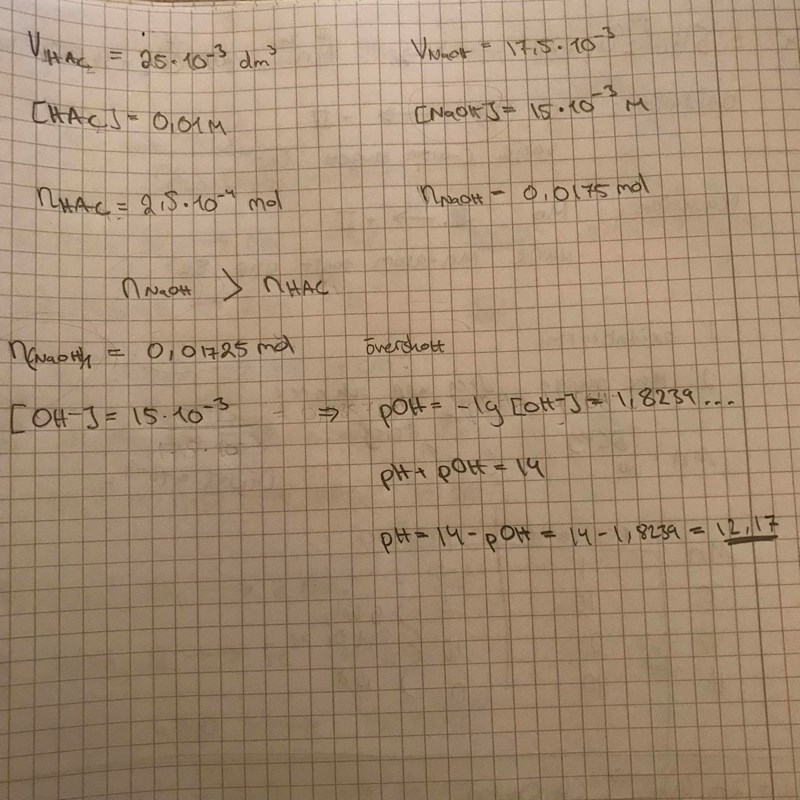 V_HAc = 25·10⁻³ dm³
V_NaOH = 17,5·10⁻³
[HAC] = 0,01M
[NaOH] = 15·10⁻³ M
n_HAC = 2,5·10⁻⁴ mol
n_NaOH = 0,0175 mol
n_NaOH > n_HAC
n(NaOH) = 0,01725 mol överskott
[OH-] = 15·10⁻³ ⇒ pOH = -lg [OH-] = 1,8239...
pH + pOH = 14
pH = 14 - pOH = 14 - 1,8239 = 12,17